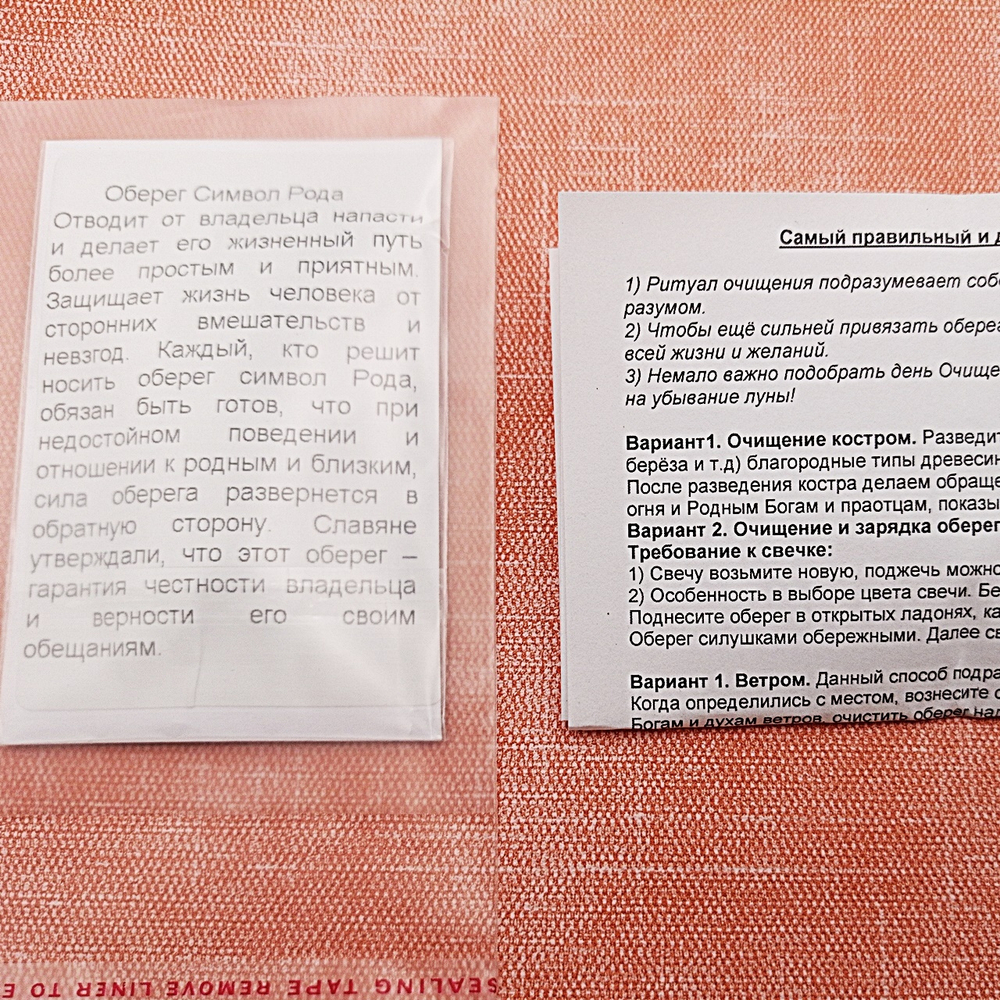 Оберег Символ Рода
Отводит от владельца напасти
и делает его жизненный путь
более простым и приятным.
Защищает жизнь человека от
сторонних вмешательств и
невзгод. Каждый, кто решит
носить оберег символ Рода,
обязан быть готов, что при
недостойном поведении и
отношении к родным и близким,
сила оберега развернется в
обратную сторону. Славяне
утверждали, что этот оберег –
гарантия честности владельца
и верности его своим
обещаниям.
SEALING TAPE REMOVE LINER TO
Самый правильный и
1) Ритуал очищения подразумевает
разумом.
2) Чтобы ещё сильней привязать
всей жизни и желаний.
3) Немало важно подобрать день
на убывание луны!
Вариант1. Очищение костром.
берёза и т.д) благородные типы
После разведения костра делаем
огня и Родным Богам и праотцам,
Вариант 2. Очищение и зарядка
Требование к свечке:
1) Свечу возьмите новую, поджечь
2) Особенность в выборе цвета свечи.
Поднесите оберег в открытых ладонях,
Оберег силушками обережными. Далее
Вариант 1. Ветром. Данный способ
Когда определились с местом, вознесите
Богам и духам ветров, очистить оберег